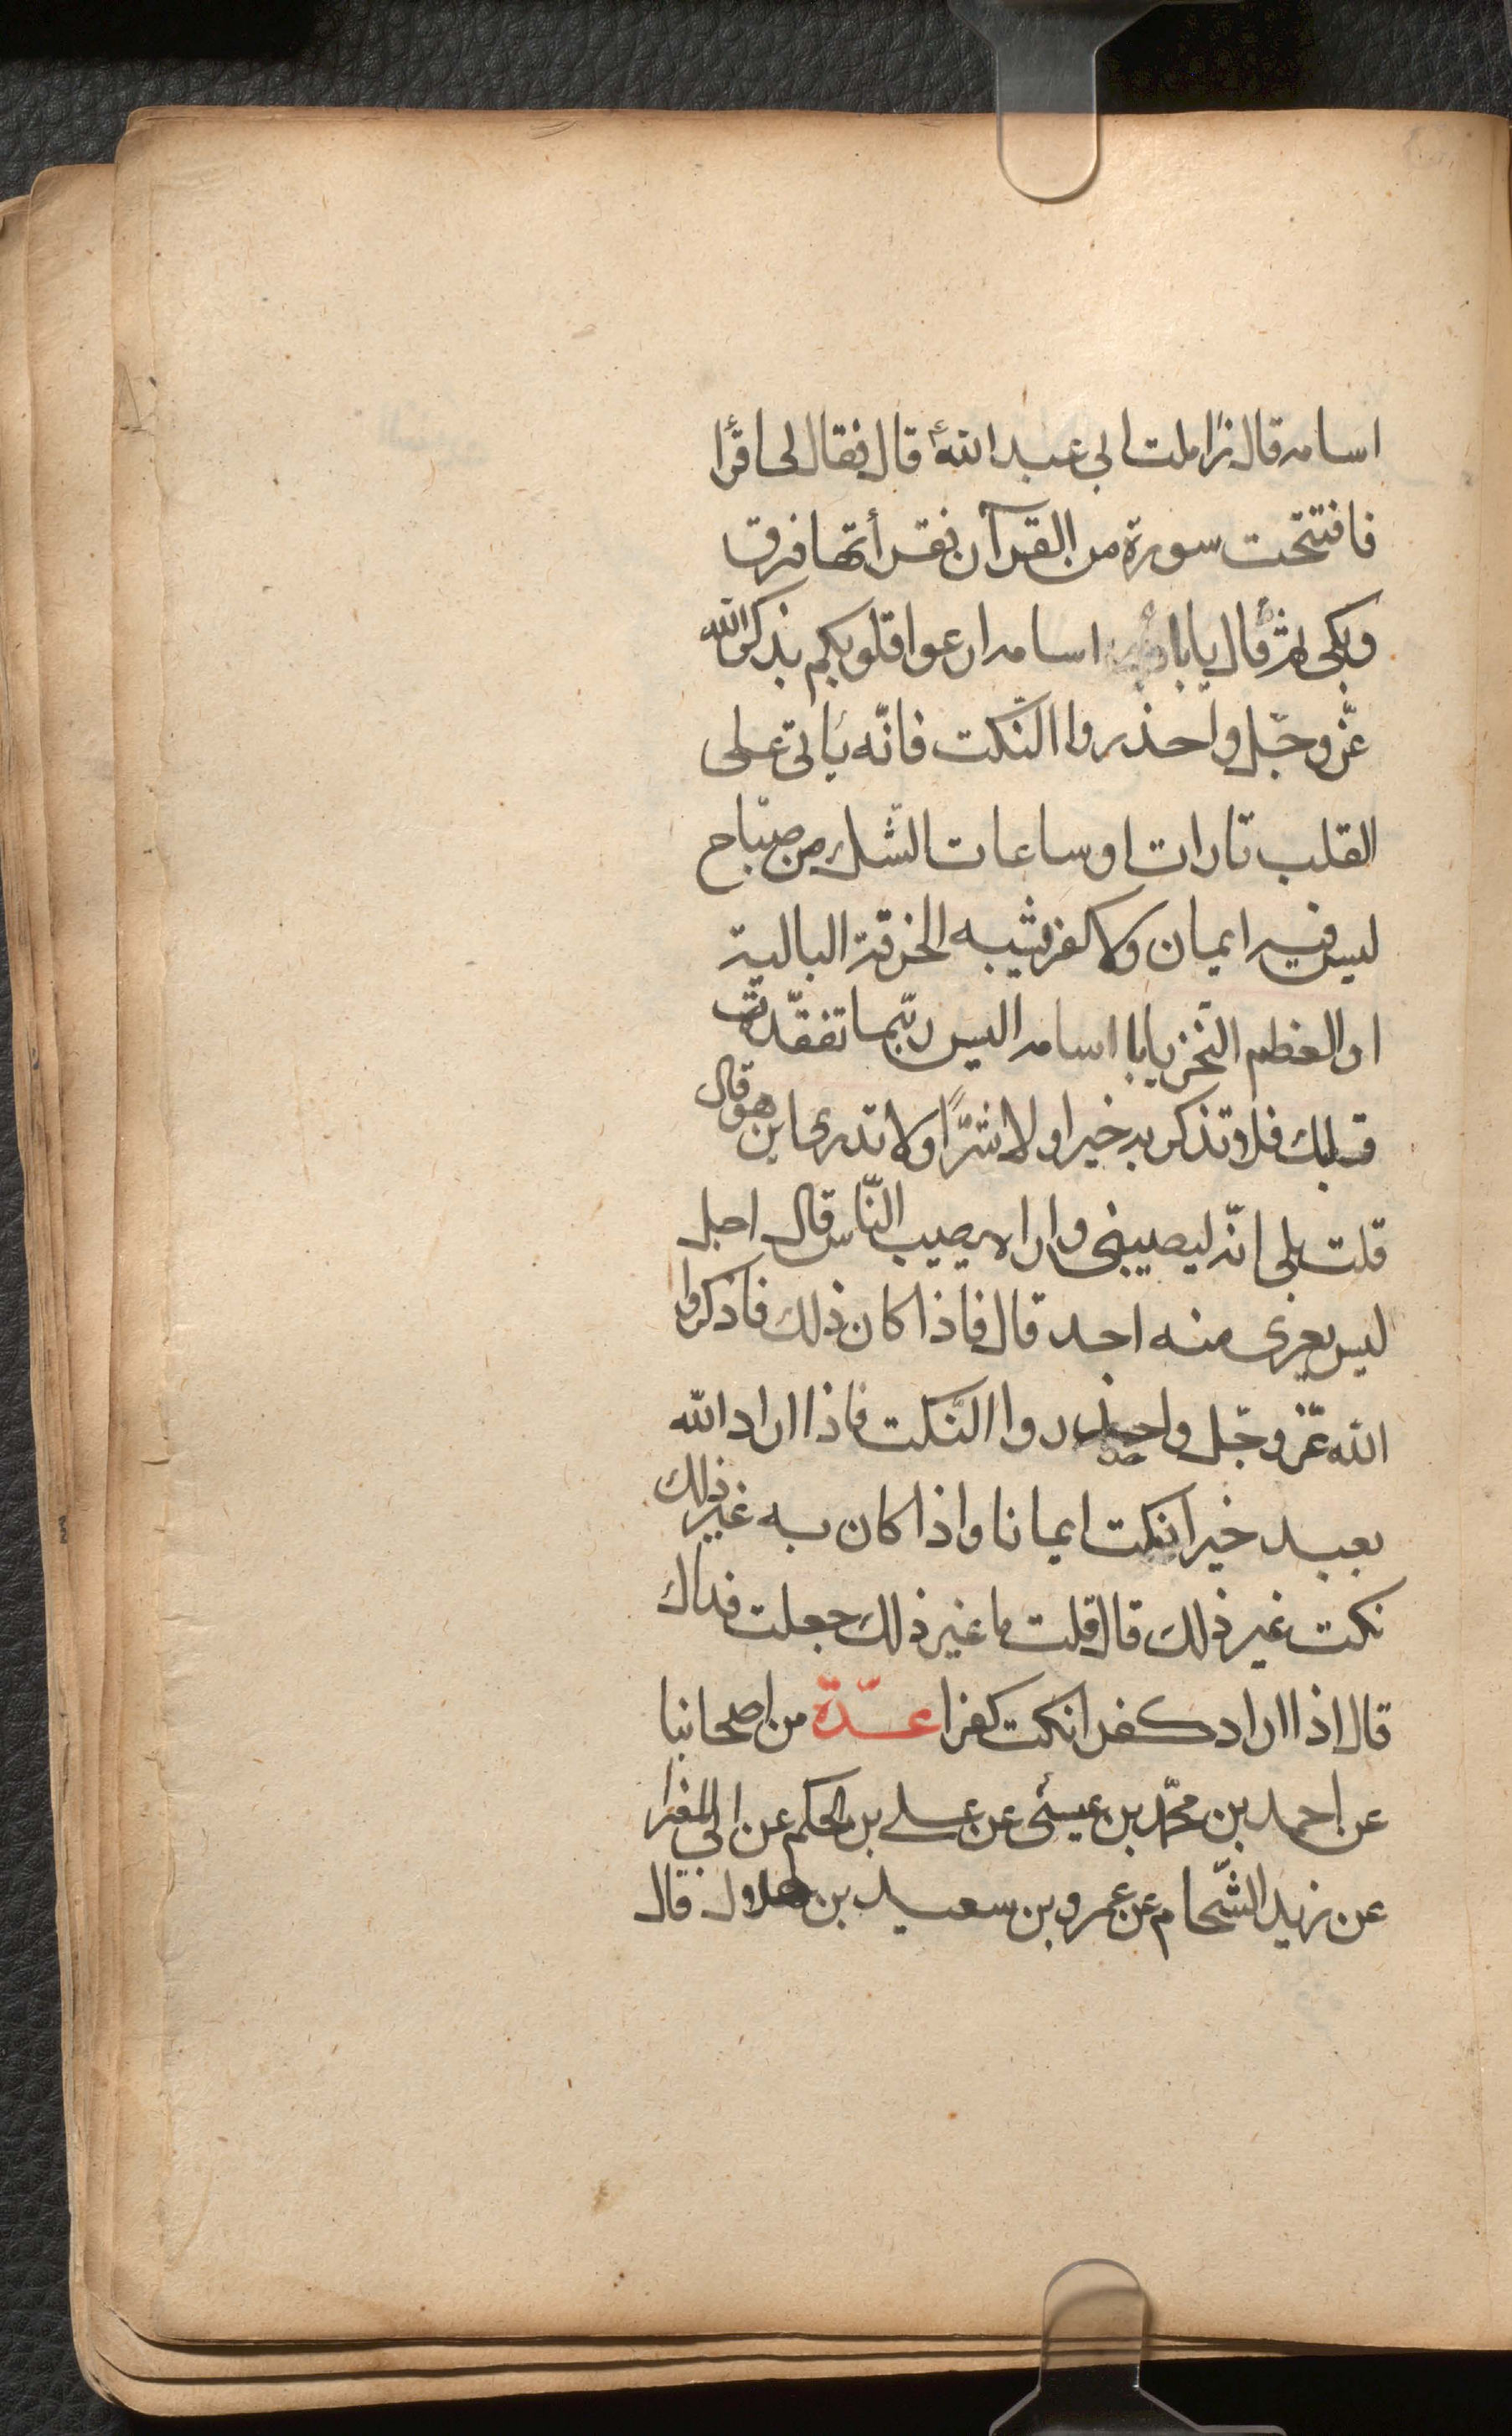 اسامه قال زاملت ابي عبد الله ع قال فقال لي اقرأ
فافتتحت سورة من القرآن فقرأتها فرق
وبكى ثم قال يابا اسامه ارعوا قلوبكم بذكر الله
عزّ وجلّ واحذروا النّكت فانّه يأتي على
القلب تارات او ساعات الشّك من صباح
ليس فيه ايمان ولا كفر شبه الخرقة البالية
او العظم النّخر يابا اسامه اليس ربّما تفقّدت
قلبك فلا تذكر به خيرا ولا شرًّا ولا تدرى اين هو قال
قلت بلى انّه ليصيبنى واراه يصيب النّاس قال اجل
ليس يعرى منه احد قال فاذا كان ذلك فاذكروا
الله عزّ وجلّ واحذروا النّكت فاذا اراد الله
بعبد خيرا نكت ايمانا واذا كان به غير ذلك
نكت غير ذلك قال قلت ما غير ذلك جعلت فداك
قال اذا اراد كفرا نكت كفرا عدّة من اصحابنا
عن احمد بن محمّد بن عيسى عن على بن الحكم عن ابي المغرا
عن زيد الشّحام عن عمرو بن سعيد بن هلال قال